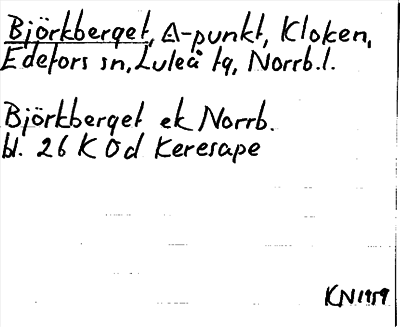 Björkberget, Δ-punkt, Kloken,
Edefors sn, Luleå tg, Norrb.l.
Björkberget ek Norrb.
bl. 26 K 0d Keresape
KN1959